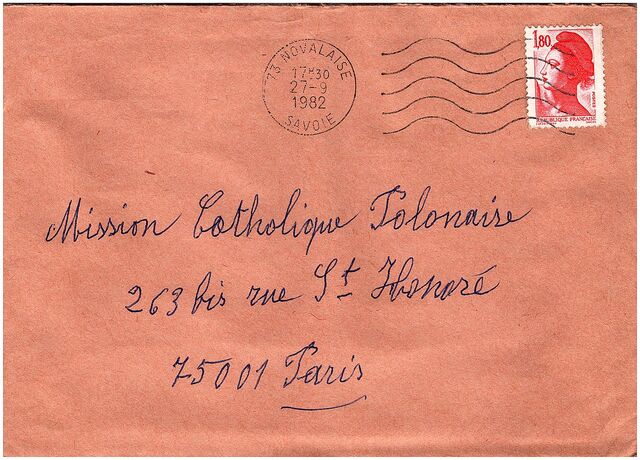 73 NOVALAISE
17H30
27-9
1982
SAVOIE
1,80
POSTES
REPUBLIQUE FRANCAISE
Mission Catholique Polonaise
263 bis rue St Honoré
75001 Paris